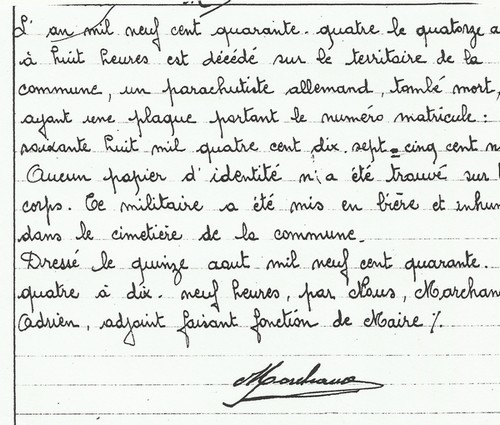 L'an mil neuf cent quarante. quatre le quatorze a
à huit heures est décédé sur le territoire de la
commune, un parachutiste allemand, tombé mort,
ayant une plaque portant le numéro matricule :
soixante huit mil quatre cent dix. sept = cinq cent n
Aucun papier d'identité n'a été trouvé sur l
corps. Ce militaire a été mis en bière et inhum
dans le cimetière de la commune.
Dressé le quinze aout mil neuf cent quarante.
quatre à dix. neuf heures, par Nous, Marchan
Adrien, adjoint faisant fonction de Maire ./.
Marchand